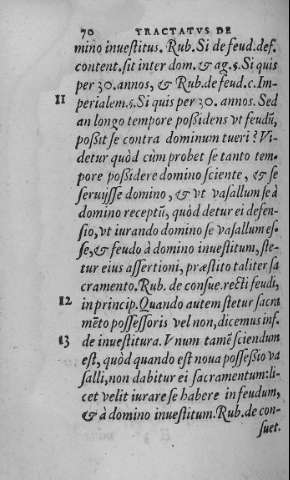 70 TRACTATVS DE
mino inuestitus. Rub. Si de feud. def.
content. sit inter dom. & ag. §. Si quis
per 30. annos, & Rub. de feud. c. Im-
11 perialem. §. Si quis per 30. annos. Sed
an longo tempore possidens vt feudū,
possit se contra dominum tueri? Vi-
detur quòd cùm probet se tanto tem-
pore possidere domino sciente, & se
seruijsse domino, & vt vasallum se à
domino receptū, quòd detur ei defen-
sio, vt iurando domino se vasallum es-
se, & feudo à domino inuestitum, ste-
tur eius assertioni, præstito taliter sa
cramento. Rub. de consue. recti feudi,
12 in princip. Quando autem stetur sacra
mēto possessoris vel non, dicemus inf.
13 de inuestitura. Vnum tamē sciendum
est, quòd quando est noua possessio va
salli, non dabitur ei sacramentum: li-
cet velit iurare se habere in feudum,
& à domino inuestitum. Rub. de con-
suet.